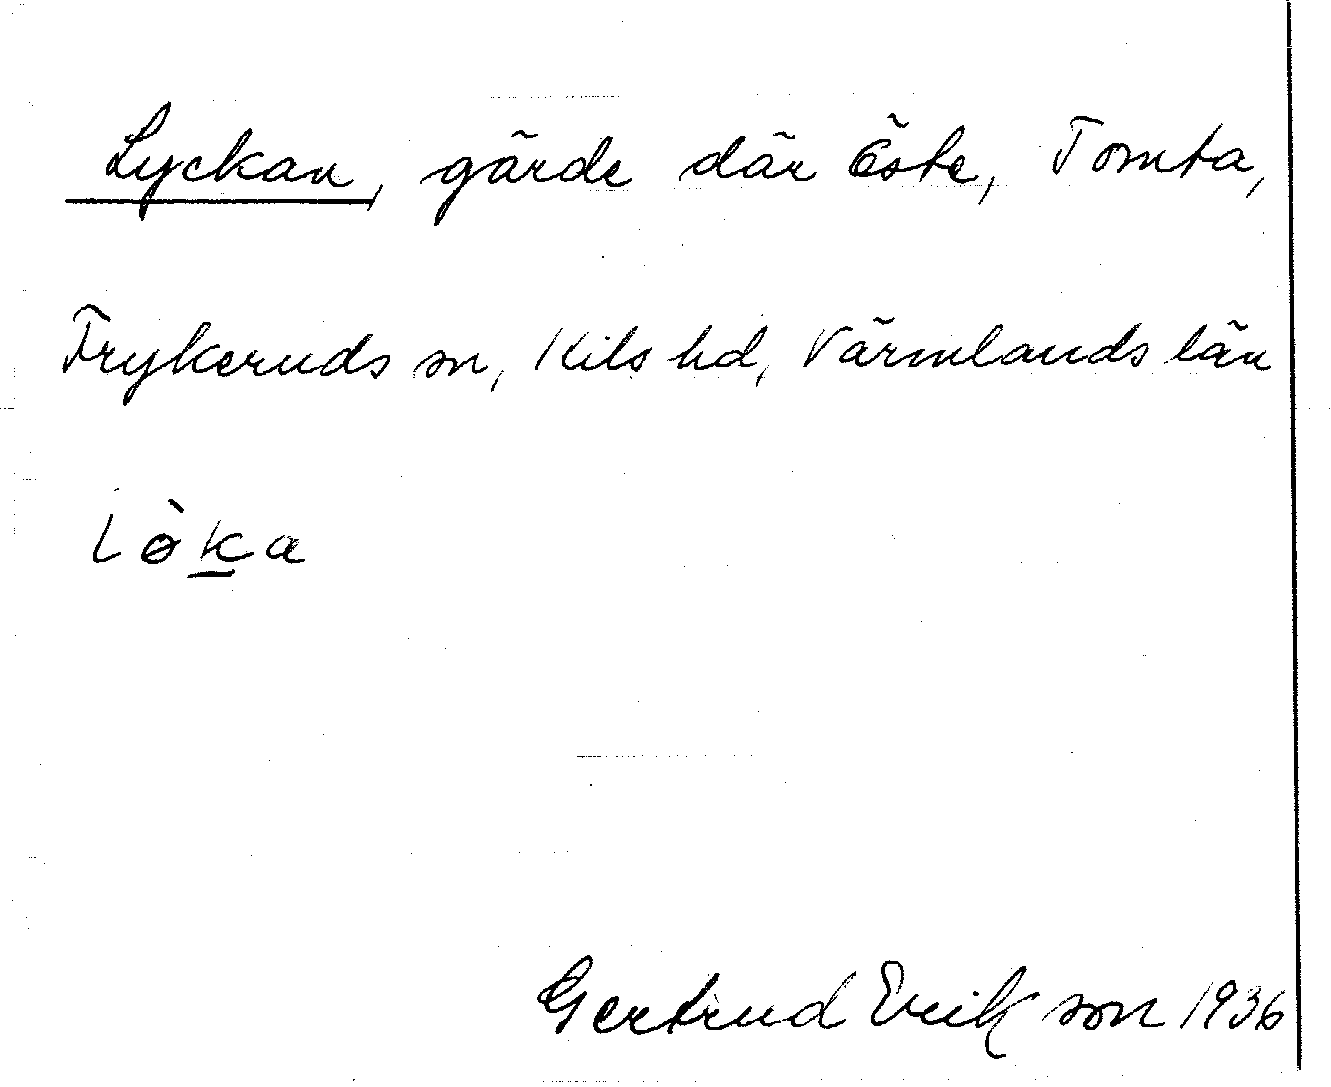 Lyckan, gärde där Öste, Tomta,
Frykeruds sn, Kils hd, Värmlands län
lòka
Gertrud Erikson 1936